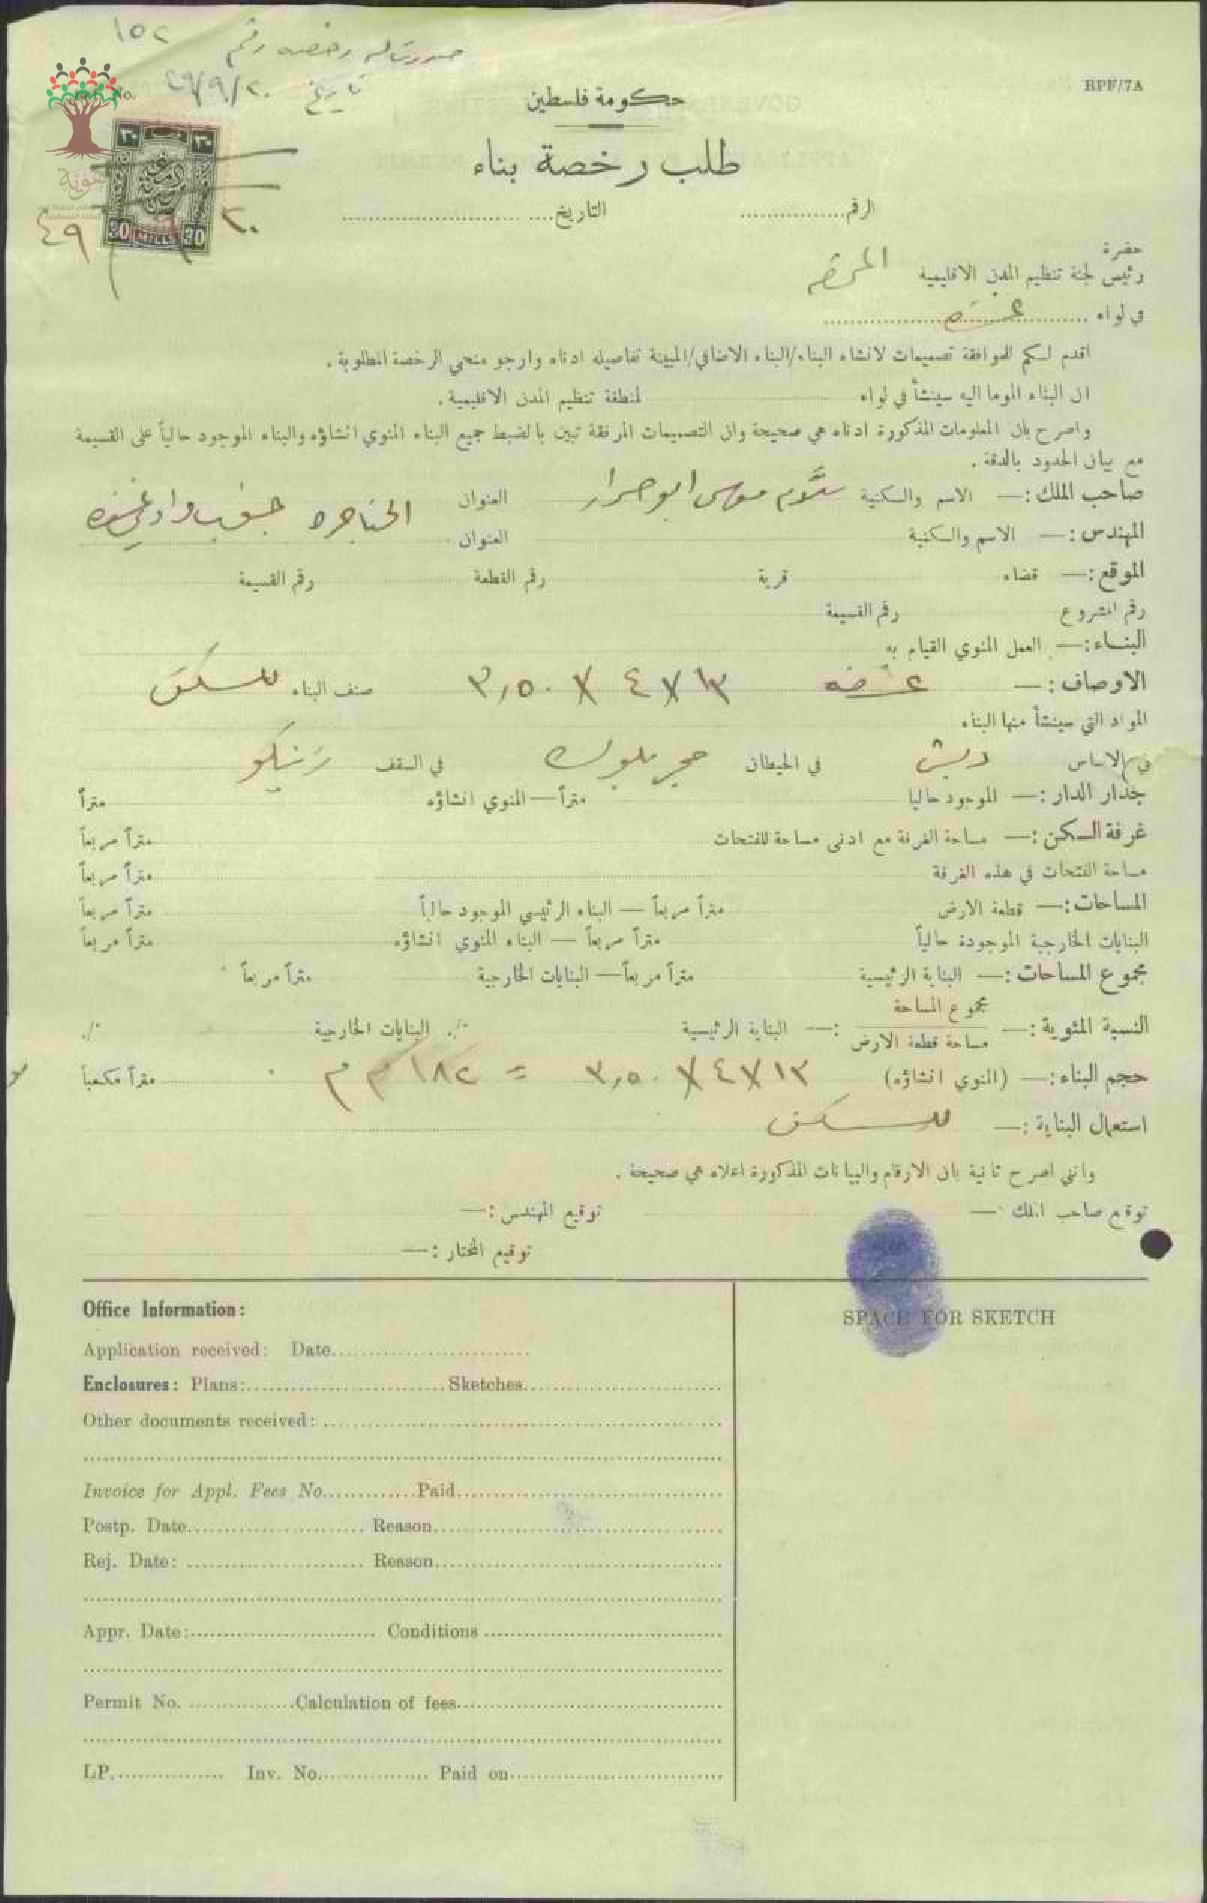 صدرت له رخصه رقم ١٥٢
تاريخ ٢٠/٩/٤٩
No.
RPF/7A
حكومة فلسطين
طلب رخصة بناء
٣٠ ٣٠
30 MILLS 30
٤٩ ٣٠
الرقم ................ التاريخ ................
حضرة
رئيس لجنة تنظيم المدن الاقليمية المحترم
في لواء غزه
اقدم لكم للموافقة تصميمات لانشاء البناء/البناء الاضافي/المبينة تفاصيله ادناه وارجو منحي الرخصة المطلوبة .
ان البناء الموما اليه سينشأ في لواء لمنطقة تنظيم المدن الاقليمية .
واصرح بان المعلومات المذكورة ادناه هي صحيحة وان التصميمات المرفقة تبين بالضبط جميع البناء المنوي انشاؤه والبناء الموجود حالياً على القسيمة
مع بيان الحدود بالدقة .
صاحب الملك :— الاسم والكنية سلام موسى ابو جرار العنوان الحناجره جنوب وادي غزه
المهندس :— الاسم والكنية العنوان
الموقع :— قضاء قرية رقم القطعة رقم القسيمة
رقم المشروع رقم القسيمة
البناء :— العمل المنوي القيام به
الاوصاف :— غرفه ١٣ × ٤ × ٣,٥٠ صنف البناء للسكن
المواد التي سينشأ منها البناء
في الاساس دبش في الحيطان حجر بلوك في السقف زينكو
جدار الدار :— الموجود حاليا متراً — المنوي انشاؤه متراً
غرفة السكن :— مساحة الغرفة مع ادنى مساحة للفتحات متراً مربعاً
مساحة الفتحات في هذه الغرفة متراً مربعاً
المساحات :— قطعة الارض متراً مربعاً — البناء الرئيسي الموجود حالياً متراً مربعاً
البنايات الخارجية الموجودة حالياً متراً مربعاً — البناء المنوي انشاؤه متراً مربعاً
مجموع المساحات :— البناية الرئيسية متراً مربعاً — البنايات الخارجية متراً مربعاً
النسبة المئوية :— مجموع المساحة / مساحة قطعة الارض :— البناية الرئيسية ./· البنايات الخارجية ./·
حجم البناء :— (المنوي انشاؤه) ١٣ × ٤ × ٣,٥٠ = ١٨٢ م م متراً مكعباً
استعمال البناية :— للسكن
وانني اصرح ثانية بان الارقام والبيانات المذكورة اعلاه هي صحيحة .
توقيع صاحب الملك :— توقيع المهندس :—
توقيع المختار :—
Office Information:
SPACE FOR SKETCH
Application received: Date................
Enclosures: Plans:................ Sketches................
Other documents received: ................
Invoice for Appl. Fees No.............Paid................
Postp. Date................ Reason................
Rej. Date: ................ Reason................
Appr. Date:................ Conditions ................
Permit No. ................Calculation of fees................
LP................. Inv. No................. Paid on................